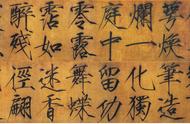 萼煥
爛一
庭中
零露
霑如
醉殘
筆造
化獨
留功
舞蝶
迷香
徑翩